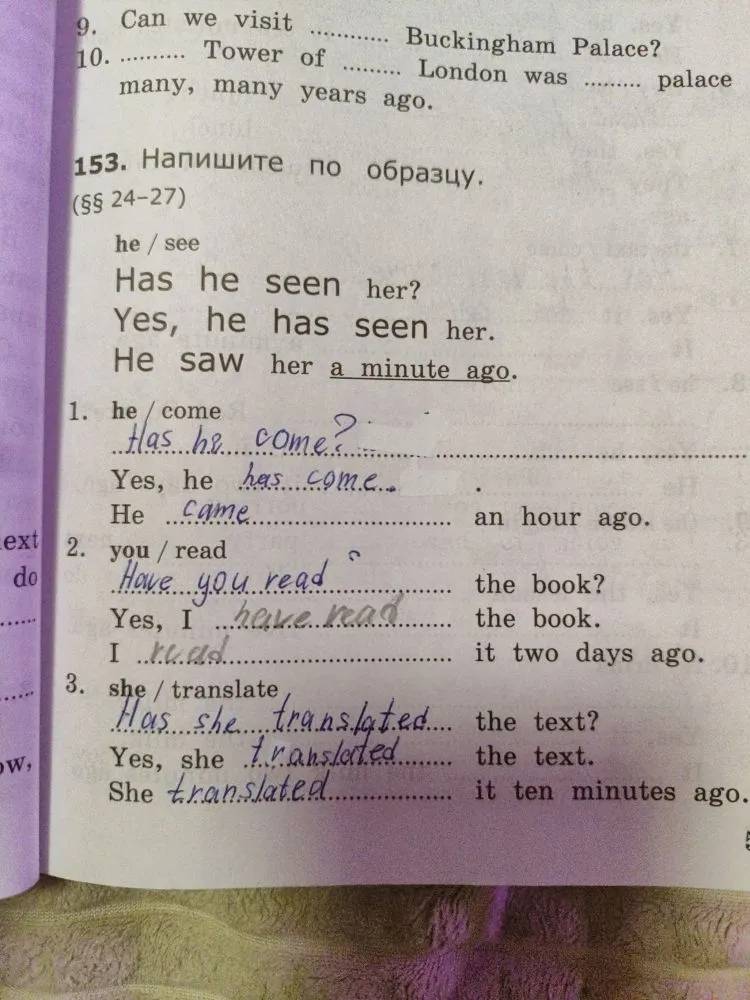 9. Can we visit ............ Buckingham Palace?
10. .......... Tower of ......... London was ......... palace
many, many years ago.
153. Напишите по образцу.
(§§ 24–27)
he / see
Has he seen her?
Yes, he has seen her.
He saw her a minute ago.
1. he / come
Has he come?
Yes, he has come. .
He came an hour ago.
2. you / read
Have you read the book?
Yes, I have read the book.
I read it two days ago.
3. she / translate
Has she translated the text?
Yes, she translated the text.
She translated it ten minutes ago.
ext
do
ow,